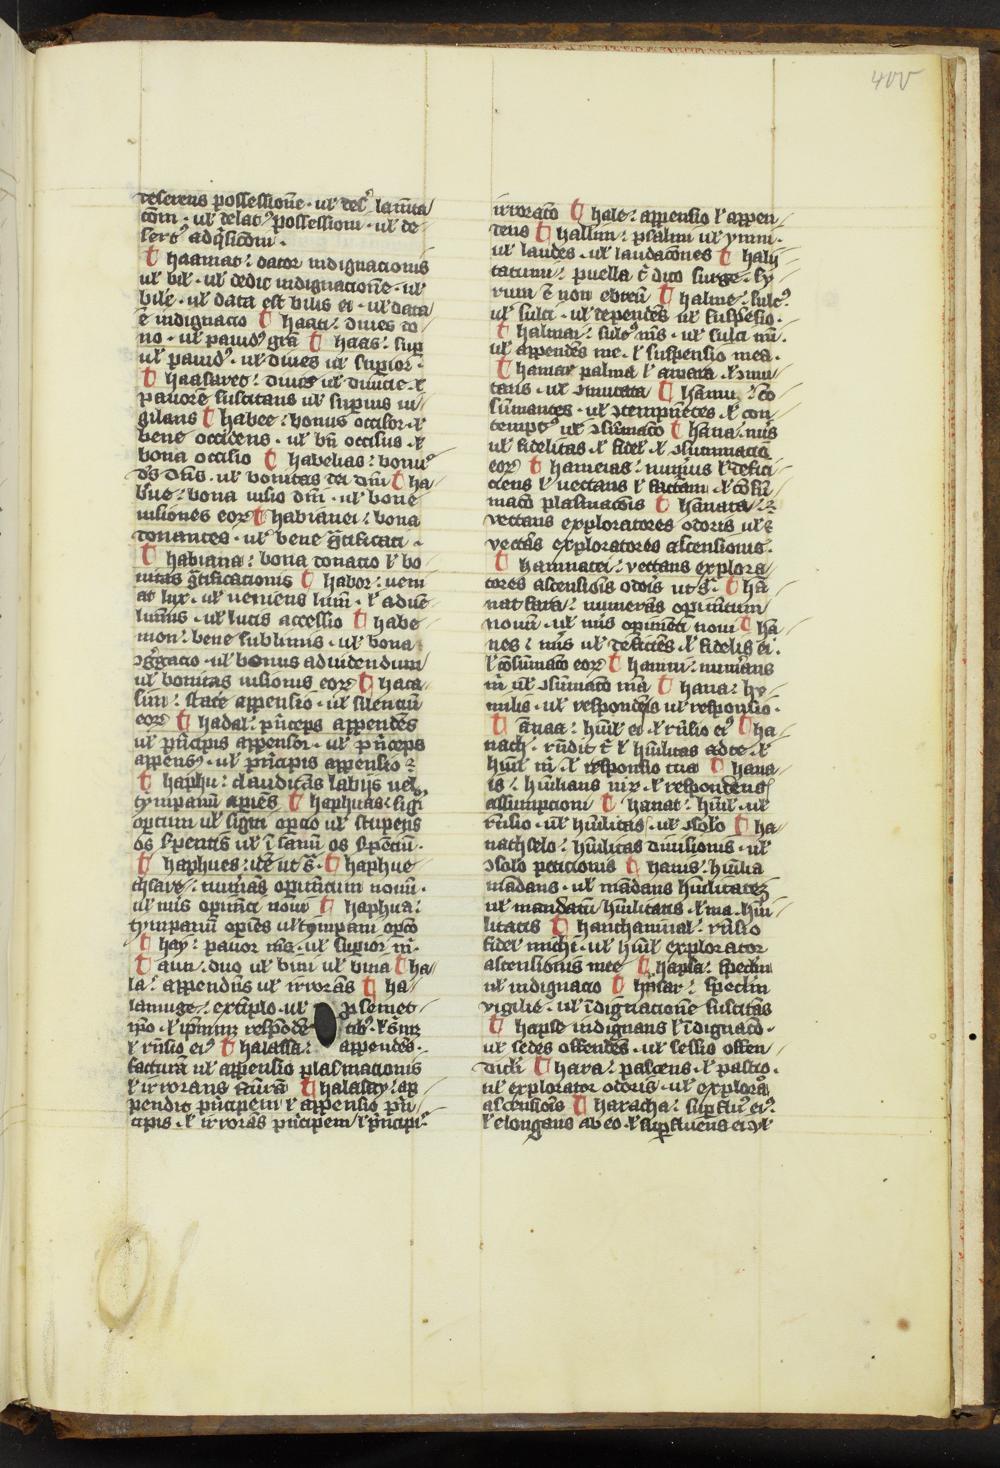 400
deserens possessione͞. ul͛ des͛ lam͞ta
c͞om. ul͛ delat͛ possessioni. ul͛ de
sert͛ adq͛sic͞oni.
haamat: dator indignacionis
ul͛ bil͛. ul͛ dedit indignacione͞. ul͛
bile͞. ul͛ data est bilis ei. ul͛ data
e͞ indignacio haati: dives do
no. ul͛ pavid͛ gr͞a haas: sup͛
ul͛ pavid͛. ul͛ dives ul͛ sup͛ior͛.
haasaret: divis ul͛ divicie ł
pavore͞ suscitans ul͛ sup͛ius vi
gilans habee: bonus occisor. ł
bene occidens. ul͛ bn͞ occisus. ł
bona occisio habelias: bonu͛
d͞s d͞ns. ul͛ bonitas dei d͞ni ha
bue: bona visio d͞ni. ul͛ bone
visiones eor͛ habianei: bona
donantes. ul͛ bene g͛tificati
habiana: bona donacio ł bo
nitas g͛tificacionis habor: veni
at lux. ul͛ veniens lum͞. ł adve͞
lum͞is. ul͛ lucis accessio habe
mon: bene sublimis. ul͛ bona
ↄg͛gacio. ul͛ bonus ad videndum
ul͛ bonitas visionis eor͛ haca
sim: state appensio. ul͛ silenciu͞
eor͛ hadal: p͛nceps appende͞s
ul͛ p͛ncipis appensor. ul͛ p͛nceps
appens͛. ul͛ p͛ncipis appensio
haphu: claudica͞s labijs vel
tympanu͞ apie͞s haphuas: sig͞i
op͛tum ul͛ signi op͛cio ul͛ stupens
os serpentis ul͛ i͞ sanu͞ os serpe͞tiu͞.
haphues: ide͞ ut s͛. haphue
chsare: num͛as op͛im͞tum novu͞.
ul͛ m͛s op͛im͞ti novi haphua:
tympanu͞ op͛ie͞s ul͛ tympani op͛c͞o
hay: pavor m͛s. ul͛ sup͛ior m͛.
aun: duo ul͛ bini ul͛ bina ha
la: appendn͞s ul͛ irrora͞s ha
lamuge: exte͞plo. ul͛ p͛ semet
ip͞o. ł ip͞imur͛ respo͞de͞s tib͛. ł
ł rn͞sio ei͛ halassa: appende͞s.
factura͞ ul͛ appensio plasmacionis
ł irrorans fc͞ura͞ halasay: ap
pendit p͛ncipem ł appensio p͛n
cipis. ł irrora͞s p͛ncipem ł p͛ncipi͛
irrorac͞o hale: appensio ł appen
dens hallim: psalmi ul͛ ymni.
ul͛ laudes. ul͛ laudac͞ones halij
tatumi: puella t͛ dico surge. sy
rum e͞ non ebreu͞ halme: sulc͛.
ul͛ sulci. ul͛ depende͞s ul͛ suspe͞sio.
halmai: sulc͛ m͛s. ul͛ sulci m͛i.
ul͛ appende͞s me. ł suspensio mea.
hamar palma ł amara. ł ↄmu
tans. ul͛ ↄmutata hamu: ↄte͞
sum͞antes. ul͛ ↄtempne͞tes. ł con
tempt͛ ul͛ ↄsum͞ac͞o hana: m͛s
ul͛ fidelitas. ł fidel͛. ł ↄsummac͞o
eor͛ hameias: num͛us ł defici
ciens ł vectans ł factam. ł co͞su͞
mac͞o plasmac͞ois hamata:
vectans exploratores odoris ul͛
vecta͞s exploratores ascensionis.
hamnatei: vectans explora
tores ascensiois odo͞is ut s͛. ha͞
nat sara: numera͞s op͛im͞tum
novu͞. ul͛ m͛s opim͞ti novi ha
nes: m͛s ul͛ deficie͞s. ł fidelis ei͛.
ł co͞sum͞ac͞o eor͛ hanini: num͛ans
m͛ ul͛ ↄsum͞ac͞o m͛a hana: hu
milis. ul͛ responde͞s ul͛ responsio.
anaa: hu͞il͛ ei. ł rn͞sio ei͛ ha
nach. rn͞dit t͛ ł hu͞il͛itas ad te. ł
hu͞il͛ m͛. ł responsio tua hana
is: hu͞ilians nix. ł respondens
assumpcioni hanat: hu͞il͛. ul͛
rn͞sio. ul͛ hu͞ilitas. ul͛ ↄsolo ha
nachselo: hu͞ilitas divisionis. ul͛
ↄsolo peticionis hanis: hu͞ilia
ma͞dans. ul͛ ma͞dans hu͞ilitatez
ul͛ mandatu͞ hu͞ilitatis. ł ma. hu͞i
litatis hanchaninal: rn͞sio
fidel͛ michi. ul͛ hu͞il͛ explorator
ascensionis mee hapsa: speclm
ul͛ indignacio hapsar: speclm
vigilie. ul͛ i͞dignacione͞ suscita͞s
hapse indignans ł i͞dignac͞o.
ul͛ sedes offende͞s. ul͛ sessio offen
dicli hara: pascens. ł pastio.
ul͛ explorator odoris. ul͛ explora͞
ascensio͞is haracha: sup͛flu͛ ei͛.
ł elongans ab eo. ł sup͛fluens ei͛ ł